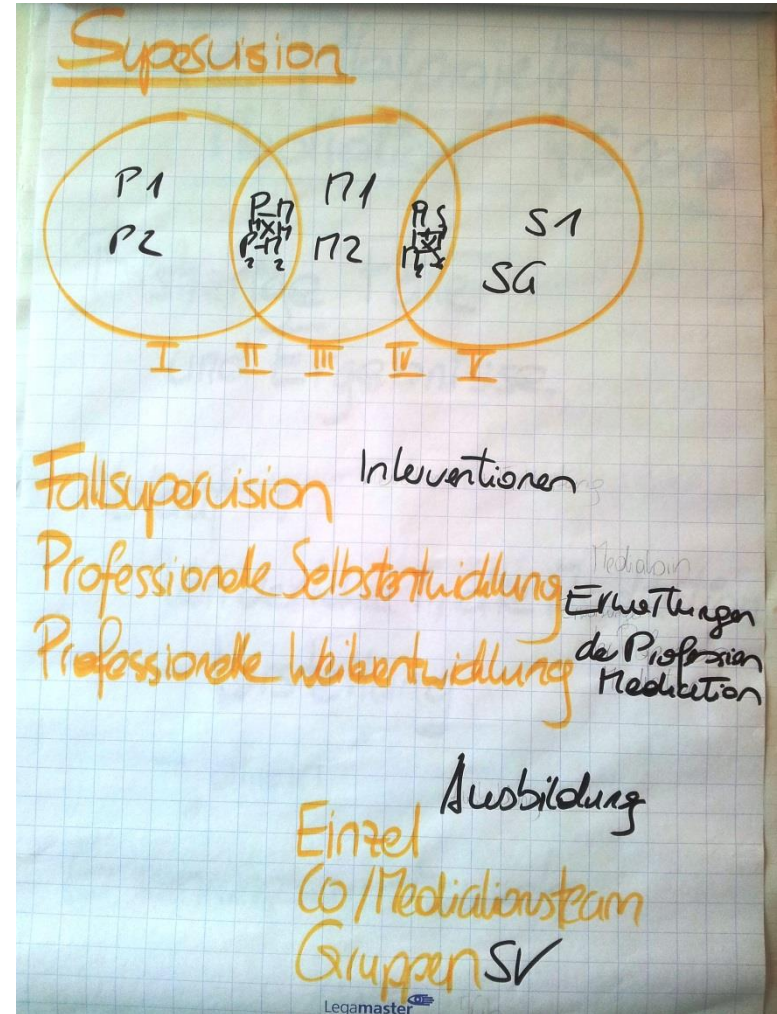 Supervision
P1 M1 S1
P2 M2 SG
P M
1 1
P M
2 2
M S
M S
2
I II III IV V
Fallsupervision Interventionen
Professionelle Selbstentwicklung Erwartungen
Professionelle Weiterentwicklung der Profession
Mediation
Ausbildung
Einzel
Co/Mediationsteam
Gruppen SV
Legamaster